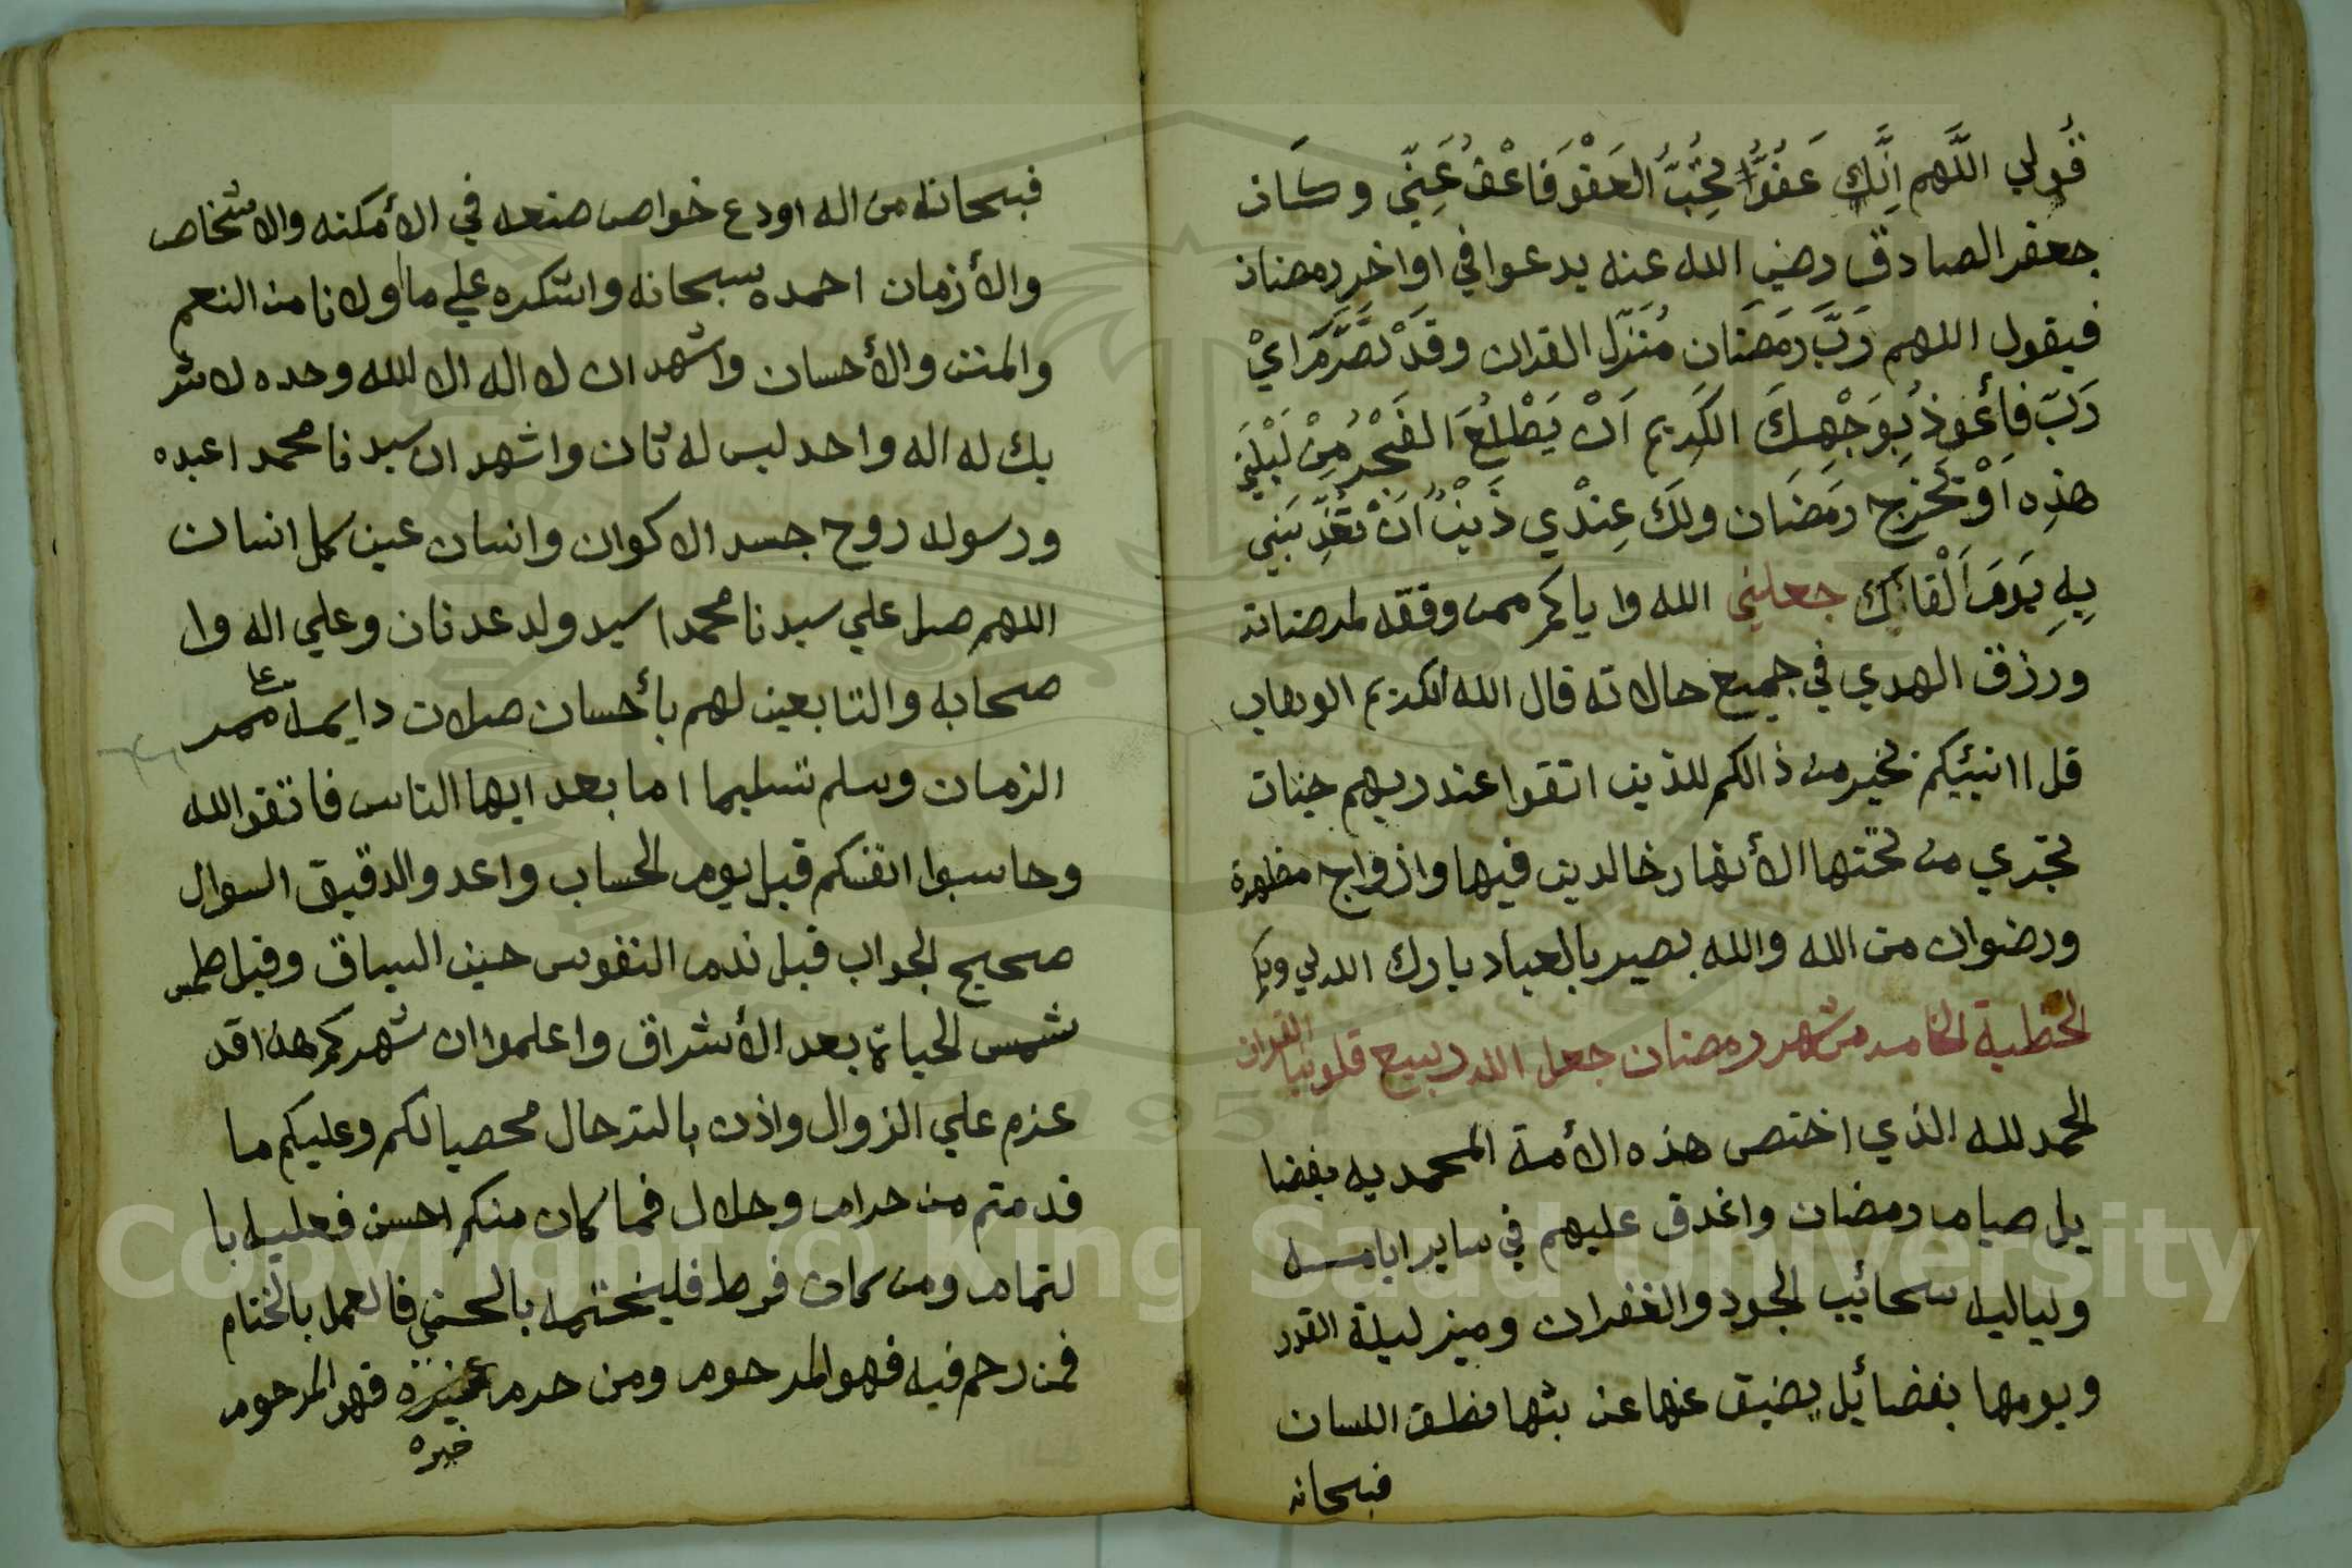 قُولي اللَّهم اِنَّكَ عَفُوٌّ تُحِبُّ العَفْوَ فَاعْفُ عَنِّي وكان
جعفر الصادق رضي الله عنه يدعوا في اواخر رمضان
فيقول اللهم رَبَّ رَمَضَان مُنَزّل القران وقَدْ تَصَّرَّمَ اي
رَبّ فأعُوذُ بِوَجْهِكَ الكَرِيمِ اَنْ يَطْلُعَ الفَجْرُ مِنْ لَيْلَتِي
هذِه اَوْ تَخْرُج رَمَضَان ولَكَ عِنْدِي ذَنْبٌ اَنْ تُعَذِّبَنِي
بِهِ يَومَ اَلْقَاكَ جعلني الله واياكم ممن وفقه لمرضاته
ورزق الهدي في جميع حالاته قال الله الكريم الوهاب
قل اانبئيكم بخير من ذالكم للذين اتقوا عند ربهم جنات
تجري من تحتها الأنهار خالدين فيها وازواج مطهرة
ورضوان من الله والله بصير بالعباد بارك الله لي ولكم
الخطبة الخامسه من شهر رمضان جعل الله ربيع قلوبنا القران
الحمد لله الذي اختص هذه الأمة المحمديه بفضا
يل صيام رمضان واغدق عليهم في ساير ايامه
ولياليه سحائيب الجود والغفران وميز ليلة القدر
ويومها بفضائيل يضيق عنها عن بثها مطلق اللسان
فبسحانه
فبسحانه من اله اودع خواص صنعه في الأمكنه والاشخاص
والأزمان احمده سبحانه واشكره علي ما اولانا من النعم
والمنن والأحسان واشهد ان لا اله الا الله وحده لا شر
يك له اله واحد ليس له ثان واشهد ان سيدنا محمدا عبده
ورسوله روح جسد الاكوان وانسان عين كل انسان
اللهم صل علي سيدنا محمدا سيد ولد عدنان وعلي اله وا
صحابه والتابعين لهم بأحسان صلات دايمه عا ممر
الزمان وسلم تسليما اما بعد ايها الناس فاتقو الله
وحاسبوا انفسكم قبل يوم الحساب واعدو الدقيق السوال
صحيح الجواب قبل ندم النفوس حين السياق وقبل طمس
شمس الحياة بعد الأشراق واعلموا ان شهركم هذا قد
عزم علي الزوال واذن بالترحال محصيا لكم وعليكم ما
قدمتم من حرام وحلال فما كان منكم احسن فعليه با
لتمام ومن كان فرط فليختمه بالحسني فالعمل بالختام
فمن رحم فيه فهو المرحوم ومن حرم خيره فهو المرحوم
خيره